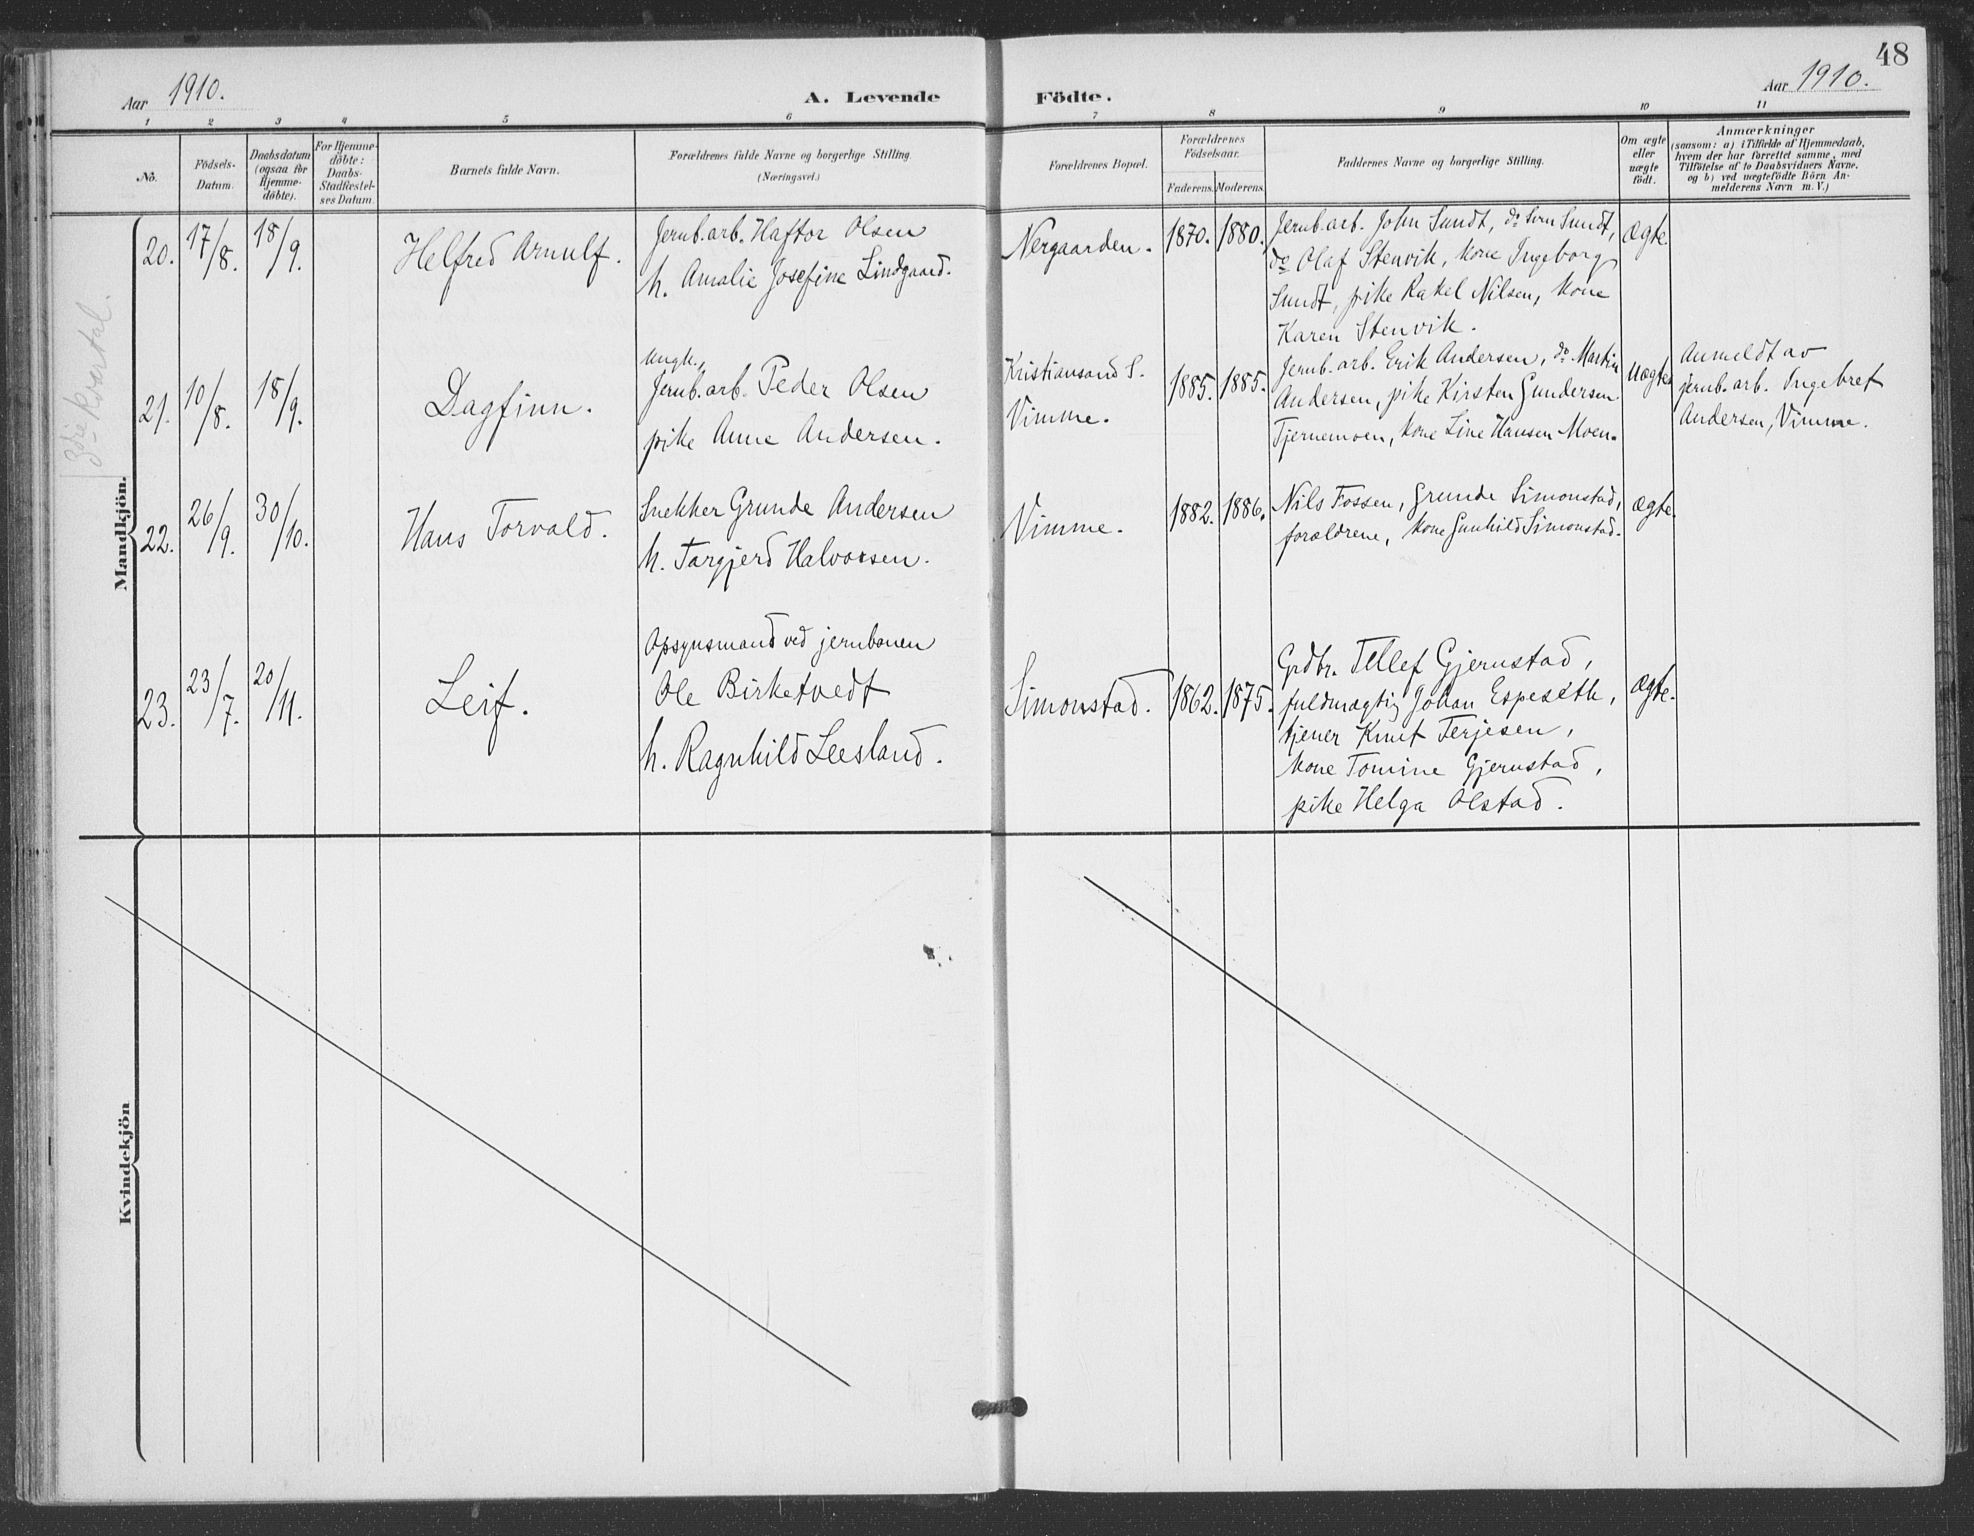 48
Aar 1910.
A. Levende Födte.
Aar 1910.
1 2 3 4 5 6 7 8 9 10 11
No.
Födsels-
Datum.
Daabsdatum
(ogsaa for
Hjemme-
døbte).
For Hjemme-
döbte:
Daabs-
Stadfæstel-
ses Datum.
Barnets fulde Navn.
Forældrenes fulde Navne og borgerlige Stilling
(Næringsvei.)
Forældrenes Bopæl.
Forældrenes
Födselsaar.
Faderens. Moderens.
Faddernes Navne og borgerlige Stilling.
Om ægte
eller
uægte
födt.
Anmærkninger
(saasom: a) i Tilfælde af Hjemmedaab,
hvem der har forrettet samme, med
Tilföielse af to Daabsvidners Navne,
og b) ved uægtefödte Börn An-
melderens Navn m. V.)
3die kvartal.
Mandkjön.
20. 17/8. 18/9.
Helfred Arnulf.
Jernb.arb. Haftor Olsen
h. Amalie Josefine Lindgaard.
Nergaarden.
1870. 1880.
Jernb.arb. John Sundt, do Sven Sundt,
do Olaf Stenvik, kone Ingeborg
Sundt, pike Rakel Nilsen, kone
Karen Stenvik.
Ægte.
21. 10/8. 18/9.
Dagfinn.
Ungk.,
Jernb.arb. Peder Olsen
pike Anne Andersen.
Kristiansand S.
Vimme.
1885. 1885.
Jernb.arb. Erik Andersen, do Martin
Andersen, pike Kirsten Gundersen
Tjernemoen, kone Line Hansen Moen.
Uægte
Anmeldt av
jernb.arb. Ingebret
Andersen, Vimme.
22. 26/9. 30/10.
Hans Torvald.
Snekker Grunde Andersen
h. Targjerd Halvorsen.
Vimme.
1882. 1886.
Nils Fossen, Grunde Simonstad,
forældrene, kone Gunhild Simonstad.
Ægte.
23. 23/7. 20/11.
Leif.
Opsynsmand ved jernbanen
Ole Birketvedt
h. Ragnhild Leesland.
Simonstad.
1862. 1875.
Grdbr. Tellef Gjernstad,
fuldmægtig Johan Espeseth,
tjener Knut Terjesen,
kone Tomine Gjernstad,
pike Helga Olstad.
Ægte.
Kvindekjön